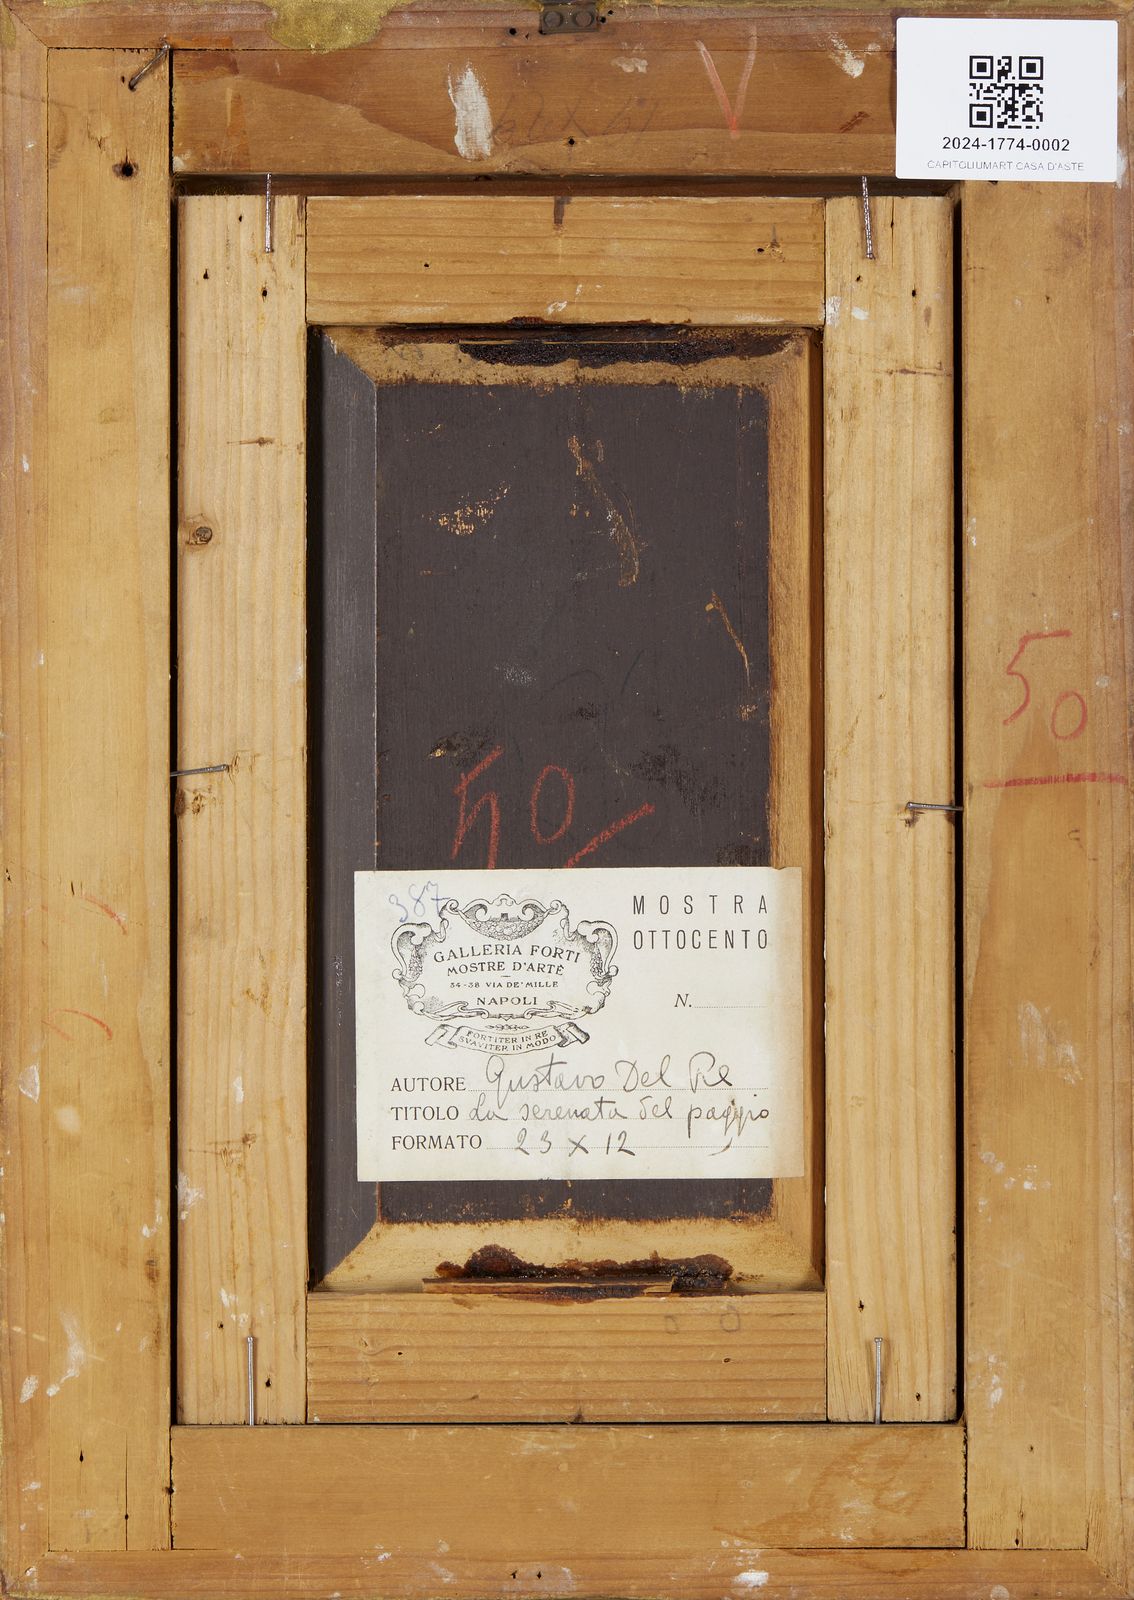 V
2024-1774-0002
CAPITOLIUMART CASA D'ASTE
50
50
387
GALLERIA FORTI
MOSTRE D'ARTE
34-38 VIA DE' MILLE
NAPOLI
FORTITER IN RE
SVAVITER IN MODO
MOSTRA
OTTOCENTO
N.
AUTORE Gustavo Del Re
TITOLO La serenata del paggio
FORMATO 23 x 12